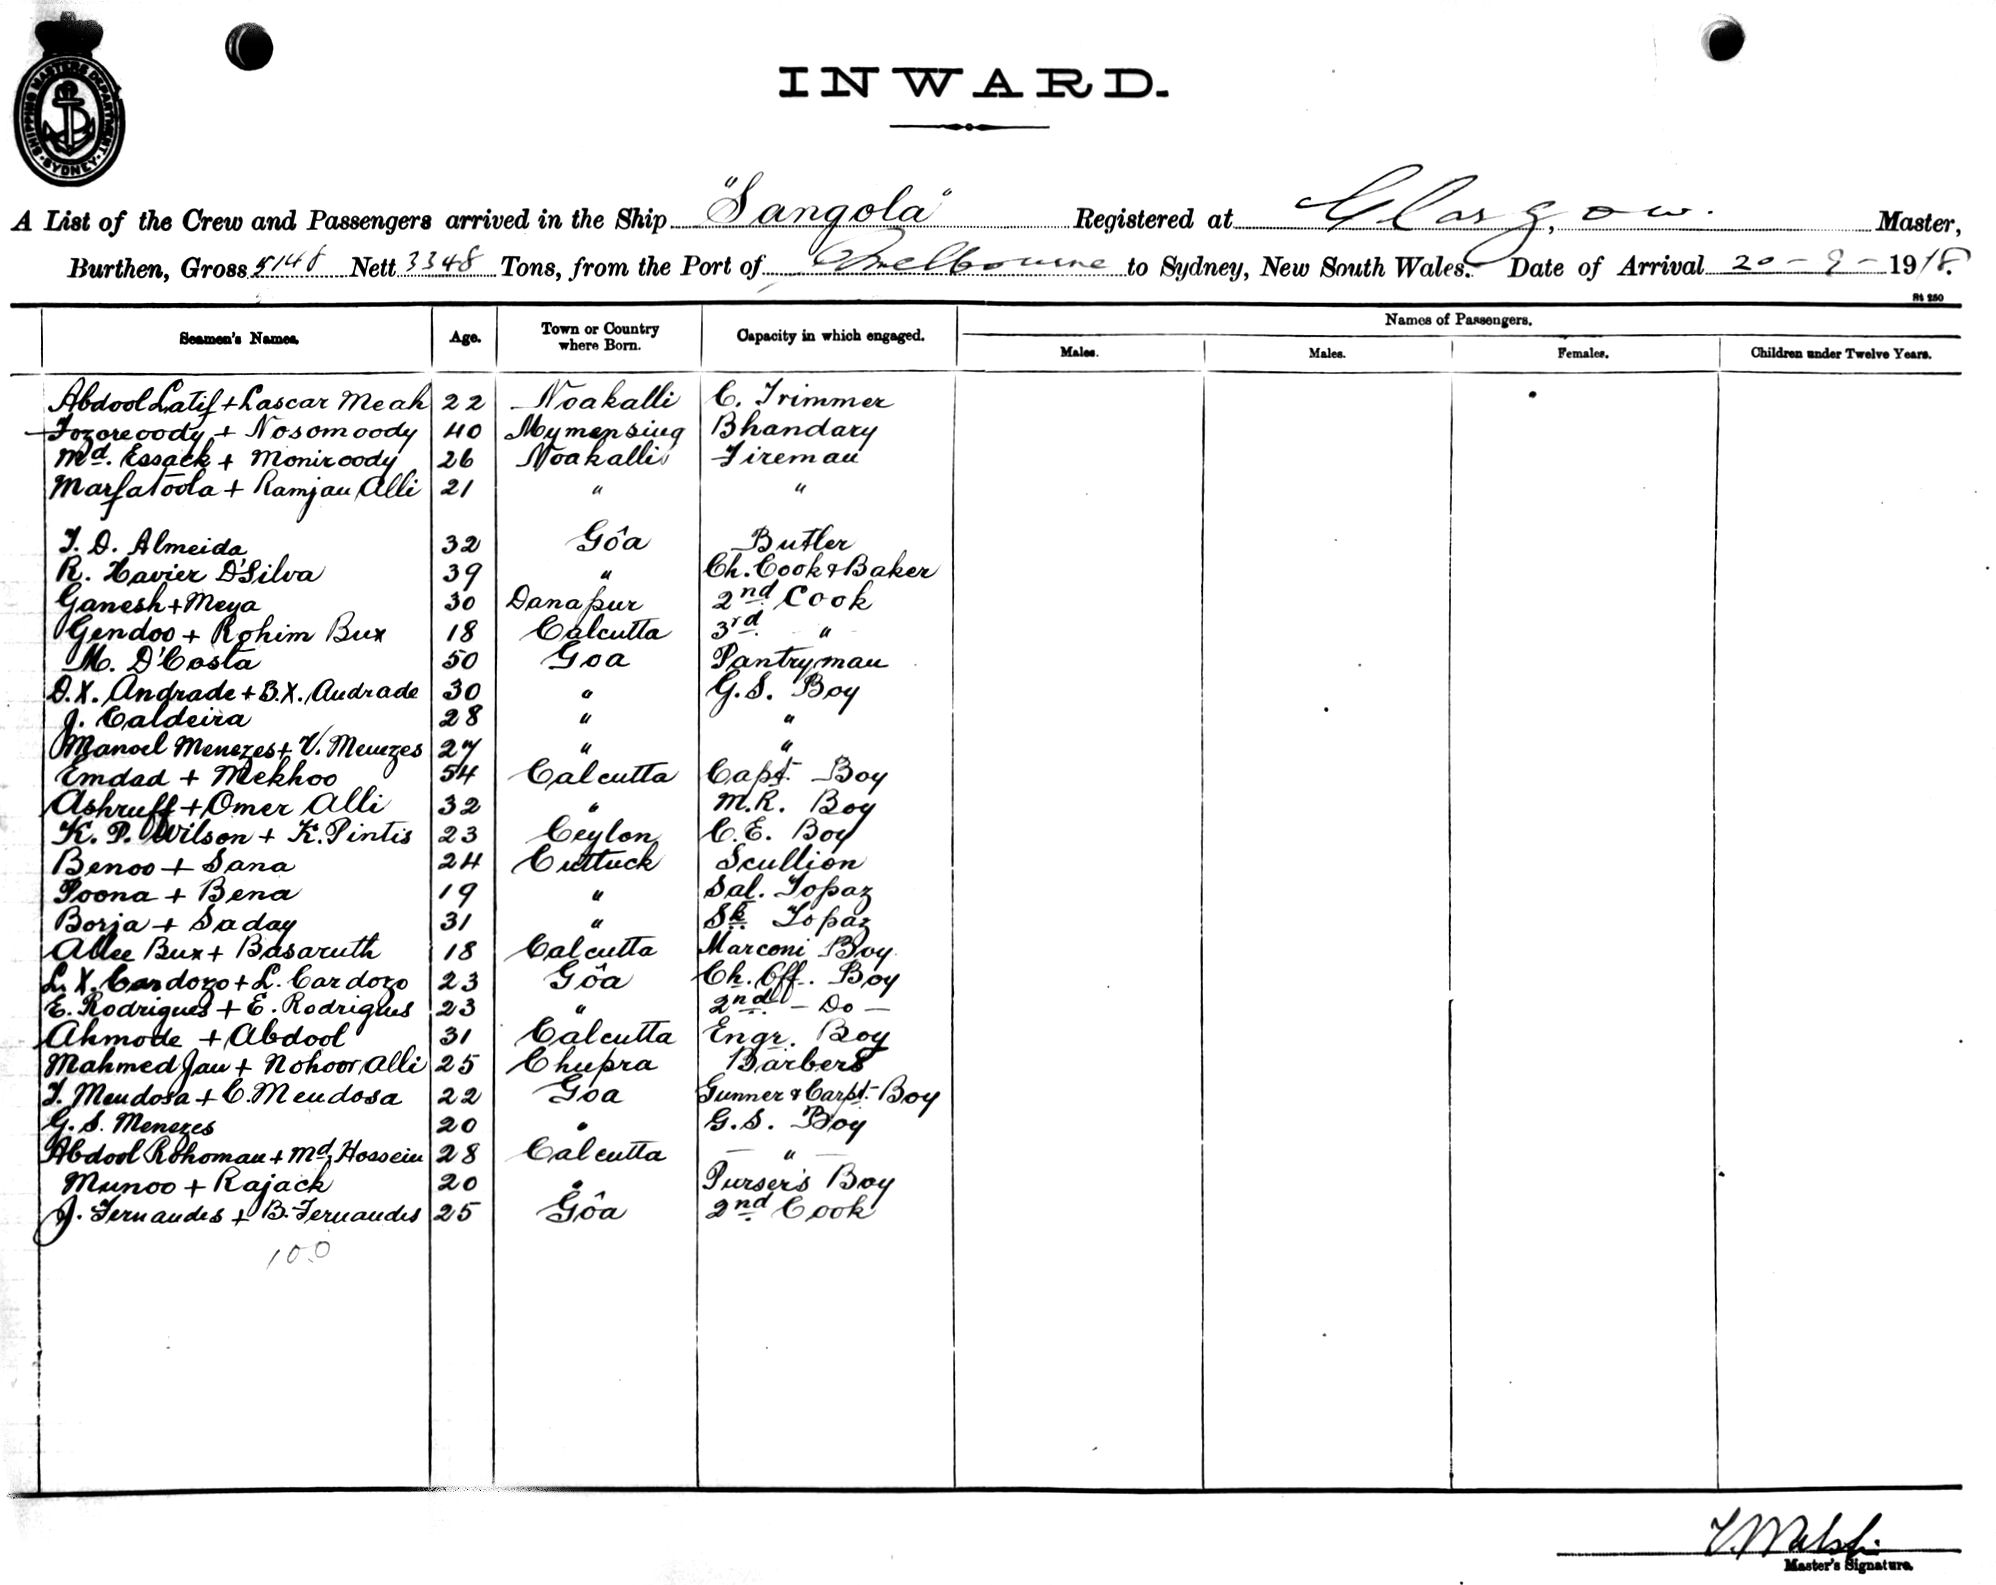 SHIPPING MASTERS DEPARTMENT
SYDNEY
INWARD.
A List of the Crew and Passengers arrived in the Ship "Sangola" Registered at Glasgow. Master,
Burthen, Gross 5148 Nett 3348 Tons, from the Port of Melbourne to Sydney, New South Wales. Date of Arrival 20 - 9 - 1918.
St 250
Seamen's Names. Age. Town or Country where Born. Capacity in which engaged. Names of Passengers.
Males. Males. Females. Children under Twelve Years.
Abdool Latif + Lascar Meah 22 Noakalli C. Trimmer
Fozoreoody + Nosomoody 40 Mymensing Bhandary
Md. Essack + Moniroody 26 Noakalli Fireman
Marfatoola + Ramjan Alli 21 " "
T. D. Almeida 32 Gôa Butler
R. Xavier D'Silva 39 " Ch. Cook & Baker
Ganesh + Meya 30 Danapur 2nd Cook
Gendoo + Rohim Bux 18 Calcutta 3rd "
M. D'Costa 50 Goa Pantryman
D.X. Andrade + B.X. Andrade 30 " G.S. Boy
J. Caldeira 28 " "
Manoel Menezes + V. Menezes 27 " "
Emdad + Mekhoo 54 Calcutta Capt. Boy
Ashruff + Omer Alli 32 " M.R. Boy
K. P. Wilson + K. Pintis 23 Ceylon C.E. Boy
Benoo + Sana 24 Cuttuck Scullion
Poona + Bena 19 " Sal. Topaz
Borja + Saday 31 " Sk. Topaz
Allee Bux + Basaruth 18 Calcutta Marconi Boy
L. X. Cardozo + L. Cardozo 23 Gôa Ch. Off. Boy
E. Rodrigues + E. Rodrigues 23 " 2nd - Do -
Ahmode + Abdool 31 Calcutta Engr. Boy
Mahmed Jan + Nohoor Alli 25 Chupra Barber
T. Mendosa + C. Mendosa 22 Goa Gunner & Carpt. Boy
G. S. Menezes 20 " G.S. Boy
Abdool Rohoman + Md. Hossein 28 Calcutta - " -
Munoo + Rajack 20 " Purser's Boy
J. Fernandes + B. Fernandes 25 Gôa 2nd Cook
100
Master's Signature.